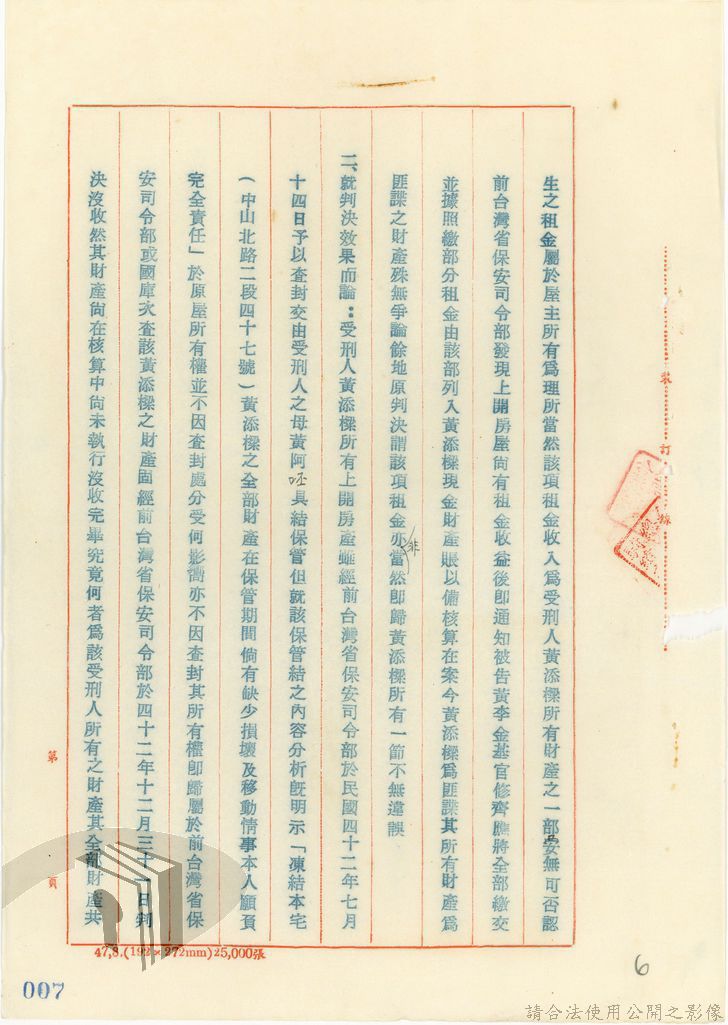 生之租金屬於屋主所有為理所當然該項租金收入為受刑人黃添樑所有財產之一部妥無可否認
前台灣省保安司令部發現上開房屋尚有租金收益後即通知被告黃李金基官修齊應將全部繳交
並據照繳部分租金由該部列入黃添樑現金財產賬以備核算在案今黃添樑為匪諜其所有財產為
匪諜之財產殊無爭論餘地原判決謂該項租金亦非當然即歸黃添樑所有一節不無違誤
二、就判決效果而論：受刑人黃添樑所有上開房產雖經前台灣省保安司令部於民國四十二年七月
十四日予以查封交由受刑人之母黃阿呸具結保管但就該保管結之內容分析既明示「凍結本宅
（中山北路二段四十七號）黃添樑之全部財產在保管期間倘有缺少損壞及移動情事本人願負
完全責任」於原屋所有權並不因查封處分受何影響亦不因查封其所有權即歸屬於前台灣省保
安司令部或國庫次查該黃添樑之財產固經前台灣省保安司令部於四十二年十二月三十一日判
決沒收然其財產尚在核算中尚未執行沒收完畢究竟何者為該受刑人所有之財產其全部財產共
裝
訂
線
第
頁
47,8.(192×272mm)25,000張
007
6
請合法使用公開之影像